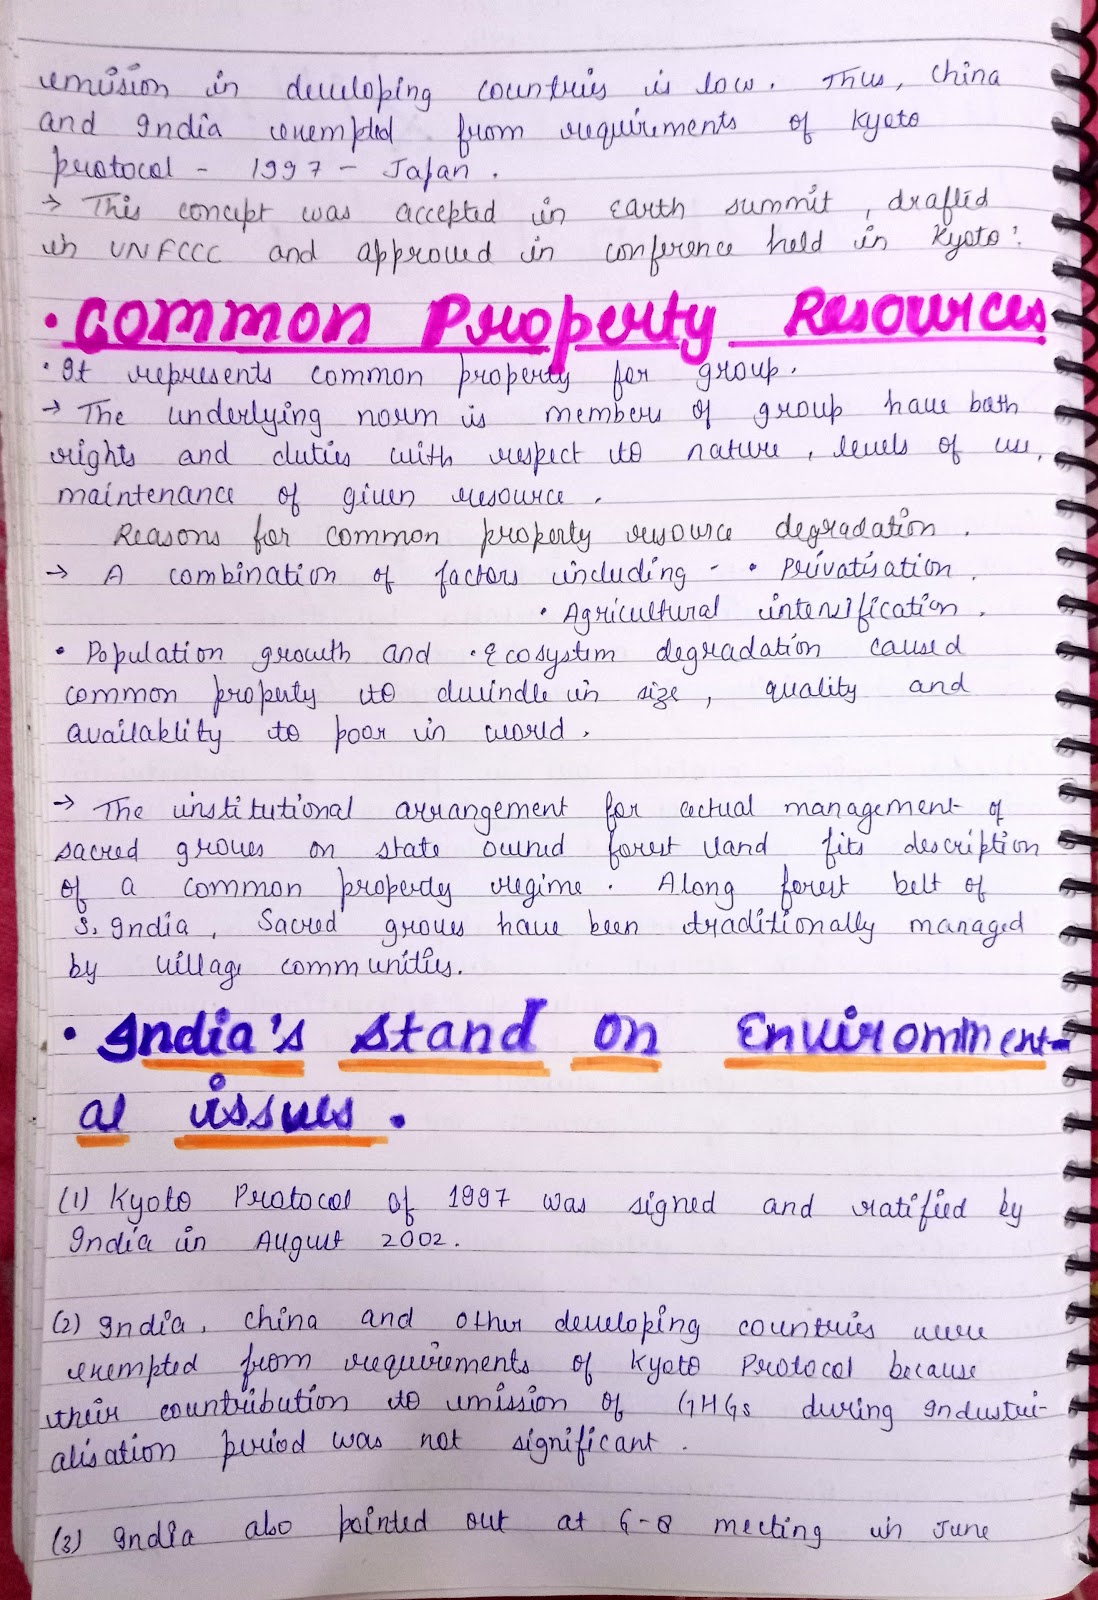 emission in developing countries is low. Thus, China
and India exempted from requirements of Kyoto
protocol - 1997 - Japan.
→ This concept was accepted in Earth summit, drafted
in UNFCCC and approved in conference held in Kyoto.
• Common Property Resources
• It represents common property for group.
→ The underlying norm is members of group have both
rights and duties with respect to nature, levels of use,
maintenance of given resource.
Reasons for common property resource degradation.
→ A combination of factors including - • Privatisation.
• Agricultural intensification.
• Population growth and • Ecosystem degradation caused
common property to dwindle in size, quality and
availablity to poor in world.
→ The institutional arrangement for actual management of
sacred groves on state owned forest land fits description
of a common property regime. Along forest belt of
S. India, Sacred groves have been traditionally managed
by village communities.
• India's Stand on Enviromment-
al issues.
(1) Kyoto Protocol of 1997 was signed and ratified by
India in August 2002.
(2) India, China and other developing countries were
exempted from requirements of Kyoto Protocol because
their countribution to emission of GHGs during Industri-
alisation period was not significant.
(3) India also pointed out at G-8 meeting in June